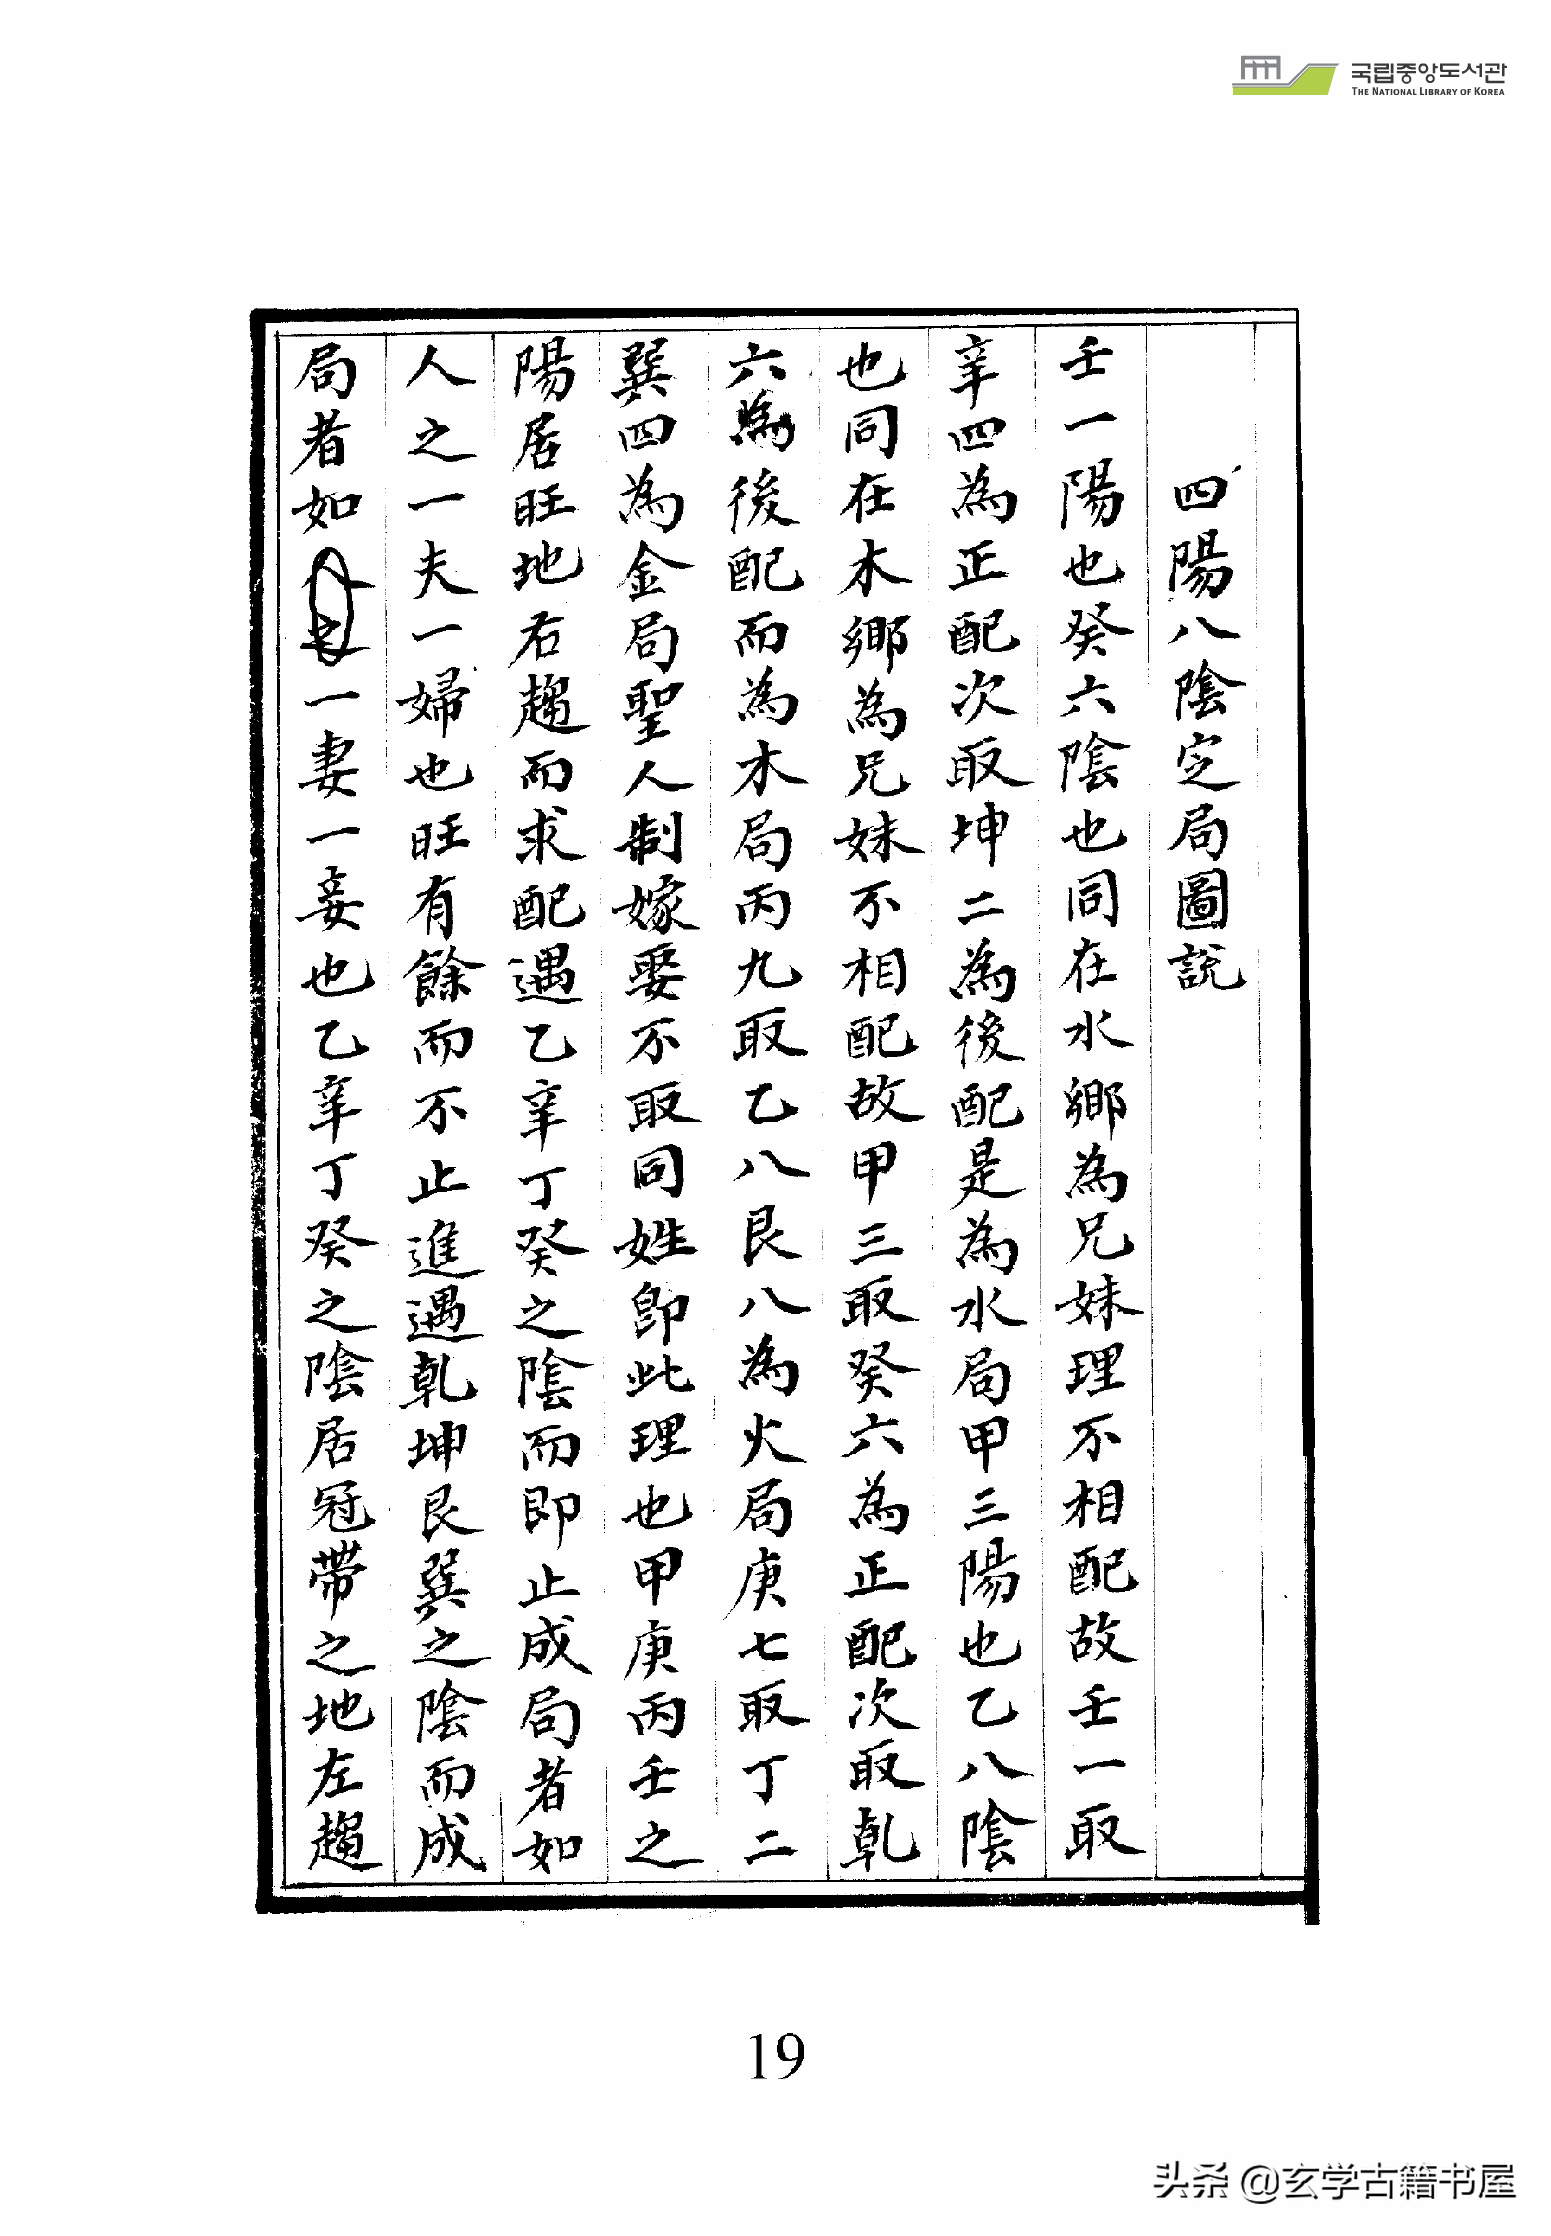 국립중앙도서관
THE NATIONAL LIBRARY OF KOREA
四陽八陰定局圖說
壬一陽也癸六陰也同在水鄉為兄妹理不相配故壬一取
辛四為正配次取坤二為後配是為水局甲三陽也乙八陰
也同在木鄉為兄妹不相配故甲三取癸六為正配次取乾
六為後配而為木局丙九取乙八艮八為火局庚七取丁二
巽四為金局聖人制嫁娶不取同姓即此理也甲庚丙壬之
陽居旺地右趨而求配遇乙辛丁癸之陰而即止成局者如
人之一夫一婦也旺有餘而不止進遇乾坤艮巽之陰而成
局者如一妻一妾也乙辛丁癸之陰居冠帶之地左趨
19
头条 @玄学古籍书屋